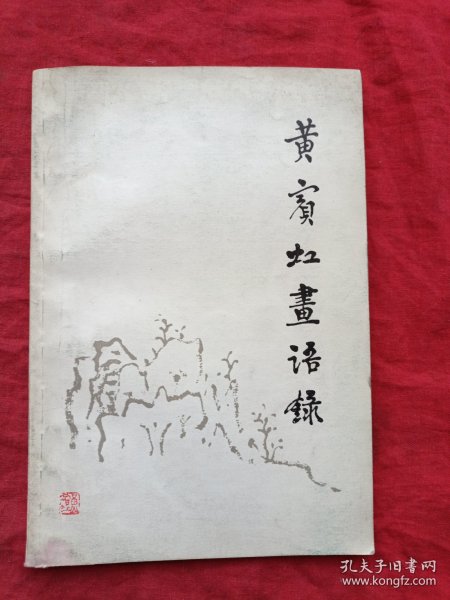 黄宾虹畫语錄
孔夫子旧书网
www.kongfz.com